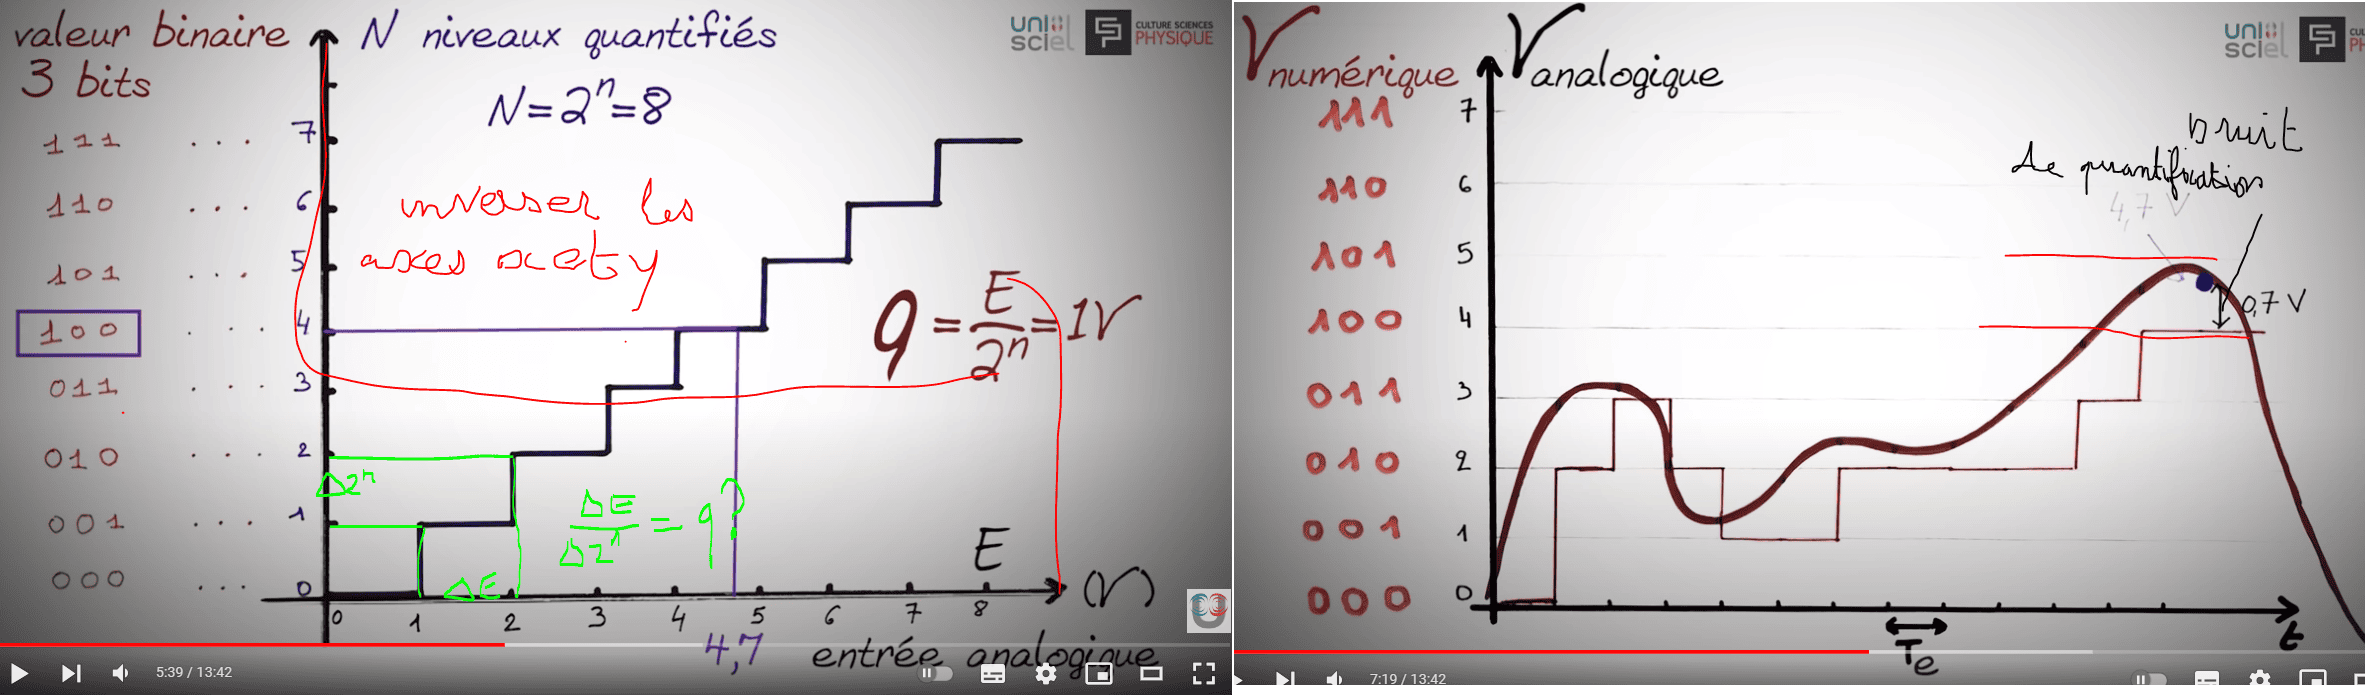 valeur binaire
3 bits
N niveaux quantifiés
N=2ⁿ=8
uni sciel
CULTURE SCIENCES
PHYSIQUE
111 ... 7
110 ... 6
101 ... 5
100 ... 4
011 ... 3
010 ... 2
001 ... 1
000 ... 0
inverser les
axes x et y
q = E/2ⁿ = 1V
Δ2ⁿ
ΔE/Δ2ⁿ = q?
ΔE
E
(V)
0 1 2 3 4 5 6 7 8
4,7 entrée analogique
5:39 / 13:42
Vnumérique Vanalogique
uni sciel
CUL
PH
111 7
110 6
101 5
100 4
011 3
010 2
001 1
000 0
bruit
de quantification
4,7 V
0,7 V
t
Te
7:19 / 13:42